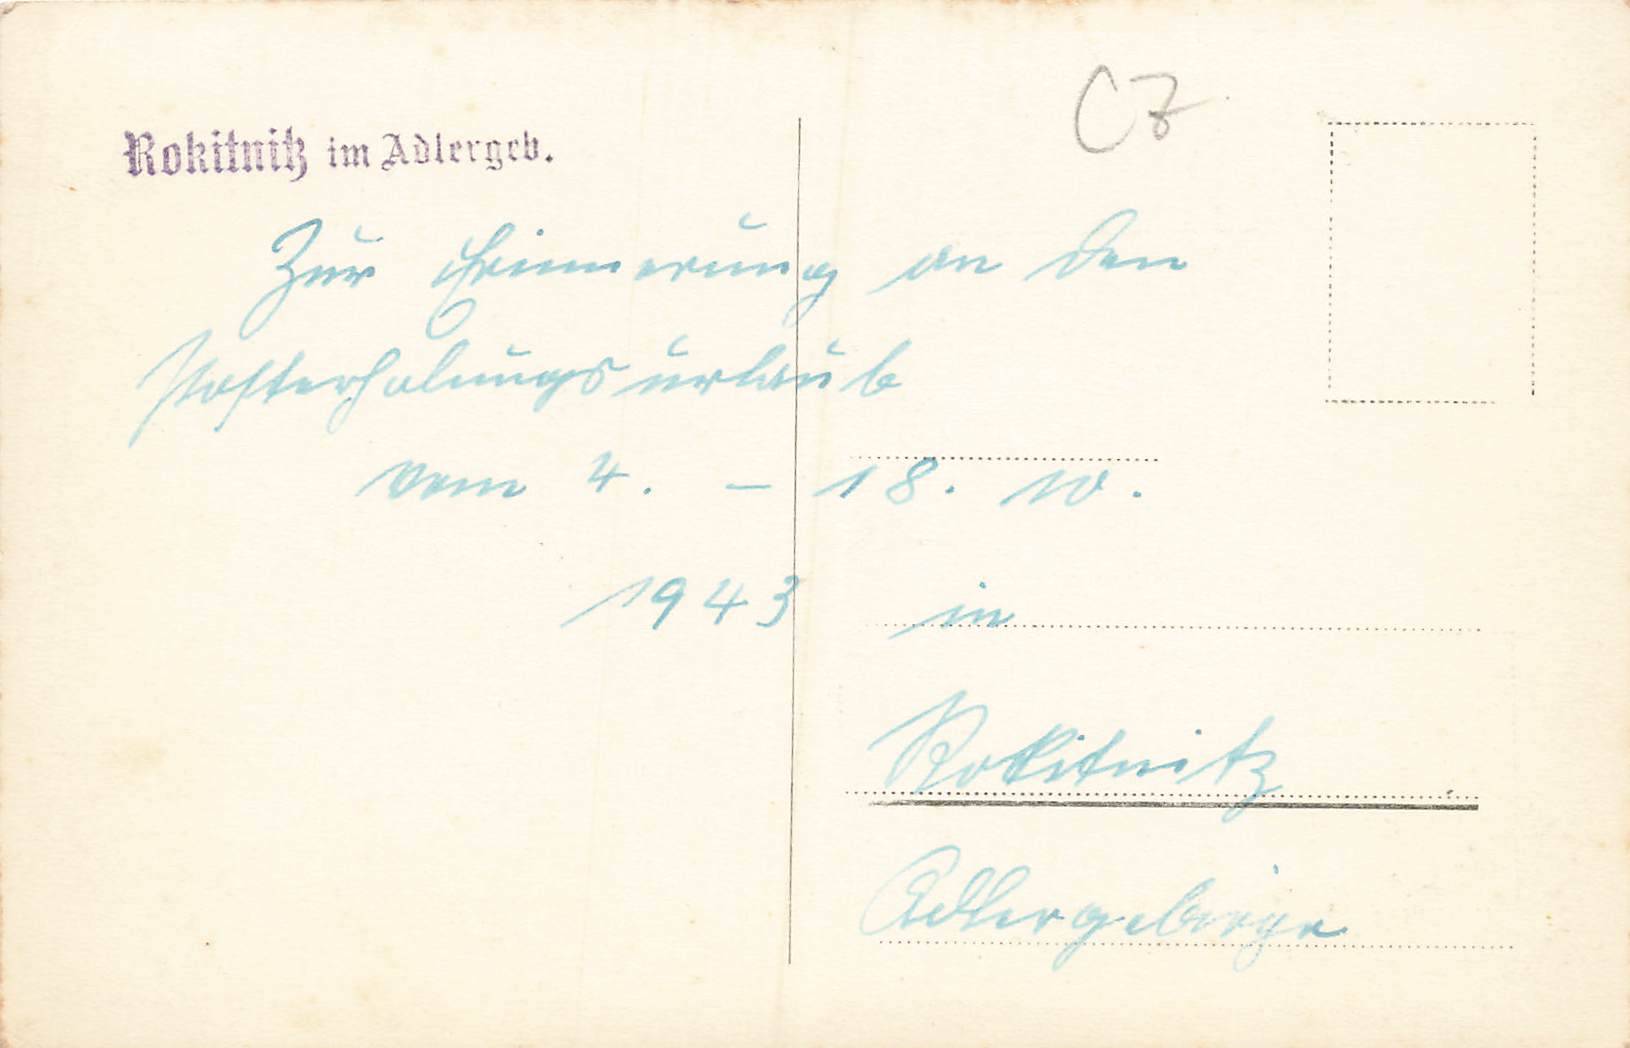 CZ
Rokitnitz im Adlergeb.
Zur Erinnerung an den
Resterholungsurlaub
vom 4. - 18. 10.
1943 in
Rokitnitz
Adlergebirge